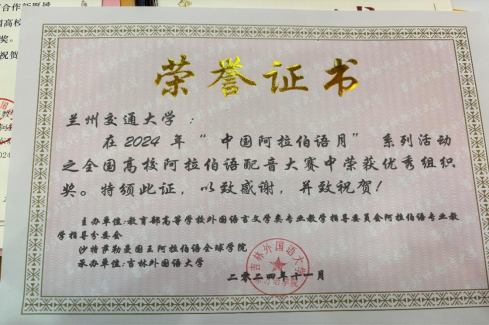 合作新愿境
国高校
奖。
祝贺
荣誉证书
兰州交通大学：
在2024年“中国阿拉伯语月”系列活动
之全国高校阿拉伯语配音大赛中荣获优秀组织
奖。特颁此证，以致感谢，并致祝贺！
主办单位:教育部高等学校外国语言文学类专业教学指导委员会阿拉伯语专业教
学指导分委会
沙特萨勒曼国王阿拉伯语全球学院
承办单位:吉林外国语大学
吉林外国语大学
二〇二四年十一月